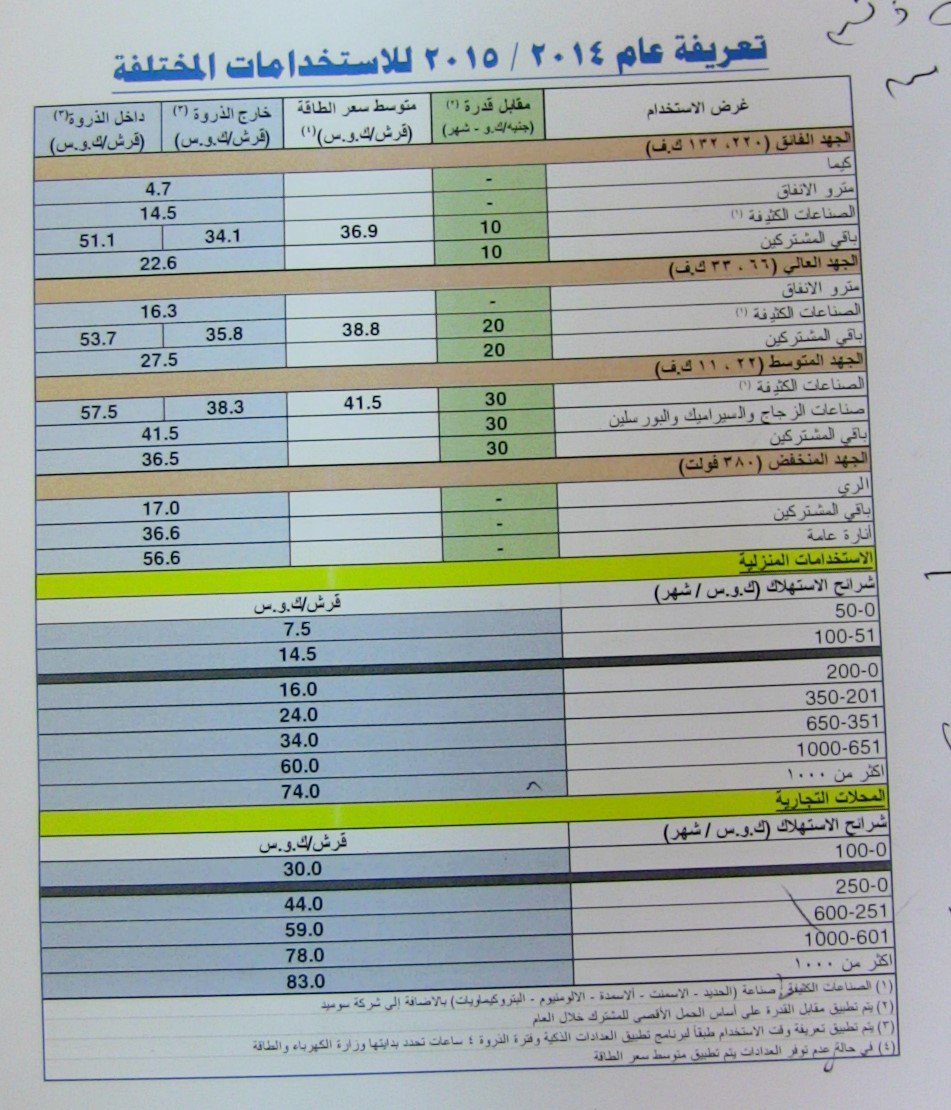 تعريفة عام ٢٠١٤ / ٢٠١٥ للاستخدامات المختلفة
غرض الاستخدام مقابل قدرة (٢) (جنيه/ك.و - شهر) متوسط سعر الطاقة (قرش/ك.و.س) (١) خارج الذروة (٣) (قرش/ك.و.س) داخل الذروة (٣) (قرش/ك.و.س)
الجهد الفائق (٢٢٠، ١٣٢ ك.ف)
كيما - 4.7
مترو الانفاق - 14.5
الصناعات الكثيفة (١) 10 36.9 34.1 51.1
باقي المشتركين 10 22.6
الجهد العالي (٦٦ ، ٣٣ ك.ف)
مترو الانفاق - 16.3
الصناعات الكثيفة (١) 20 38.8 35.8 53.7
باقي المشتركين 20 27.5
الجهد المتوسط (٢٢ ، ١١ ك.ف)
الصناعات الكثيفة (١) 30 41.5 38.3 57.5
صناعات الزجاج والسيراميك والبورسلين 30 41.5
باقي المشتركين 30 36.5
الجهد المنخفض (٣٨٠ فولت)
الري - 17.0
باقي المشتركين - 36.6
أنارة عامة - 56.6
الاستخدامات المنزلية
شرائح الاستهلاك (ك.و.س / شهر) قرش/ك.و.س
50-0 7.5
100-51 14.5
200-0 16.0
350-201 24.0
650-351 34.0
1000-651 60.0
اكثر من ١٠٠٠ 74.0
المحلات التجارية
شرائح الاستهلاك (ك.و.س / شهر) قرش/ك.و.س
100-0 30.0
250-0 44.0
600-251 59.0
1000-601 78.0
اكثر من ١٠٠٠ 83.0
(١) الصناعات الكثيفة صناعة (الحديد - الاسمنت - ألاسمدة - الالومنيوم - البتروكيماويات) بالاضافة إلى شركة سوميد
(٢) يتم تطبيق مقابل القدرة علي أساس الحمل الأقصي للمشترك خلال العام
(٣) يتم تطبيق تعريفة وقت الاستخدام طبقاً لبرنامج تطبيق العدادات الذكية وفترة الذروة ٤ ساعات تحدد بدايتها وزارة الكهرباء والطاقة
(٤) في حالة عدم توفر العدادات يتم تطبيق متوسط سعر الطاقة